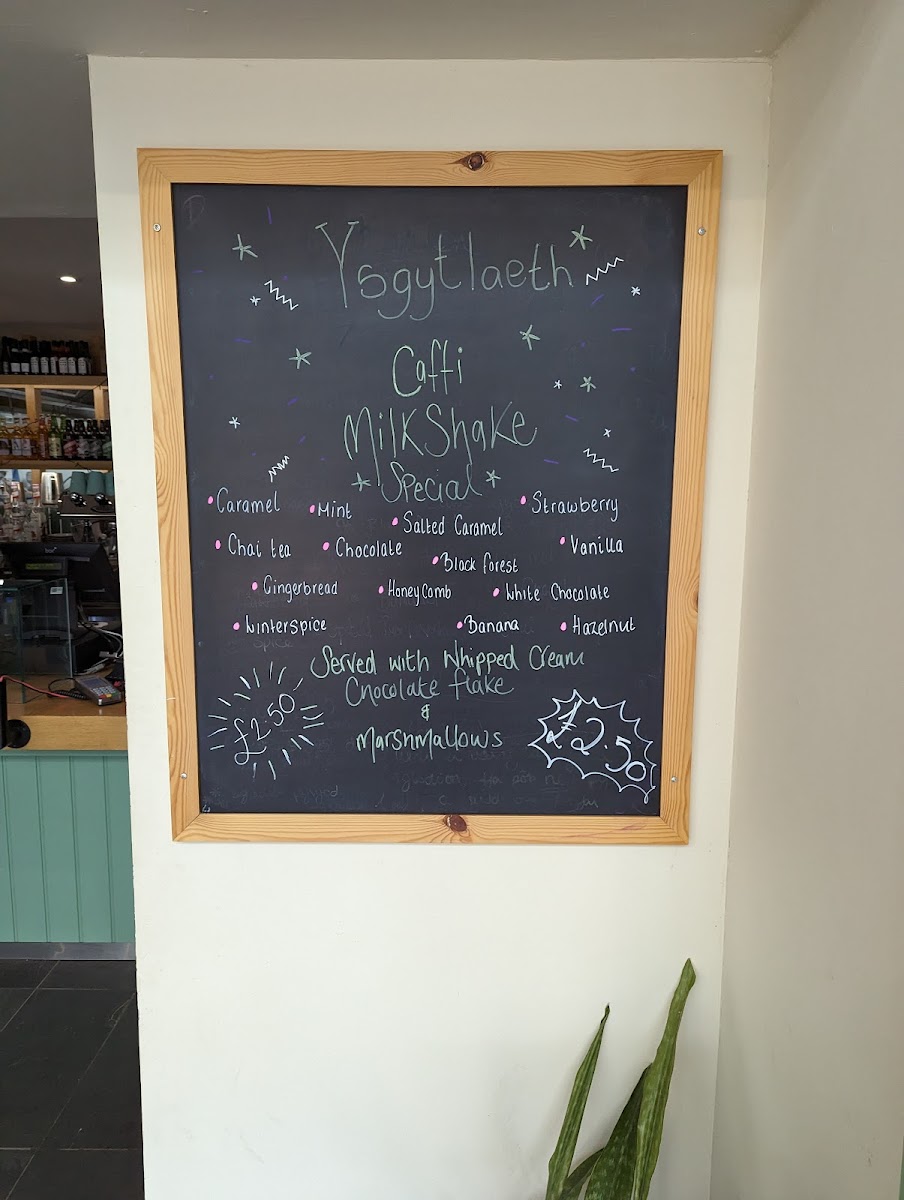 Ysgytlaeth
Caffi
Milkshake
Special
Caramel
Mint
Salted Caramel
Strawberry
Chai tea
Chocolate
Black forest
Vanilla
Gingerbread
Honeycomb
White Chocolate
Winterspice
Banana
Hazelnut
Served with Whipped Cream
Chocolate flake
&
Marshmallows
£2.50
£2.50